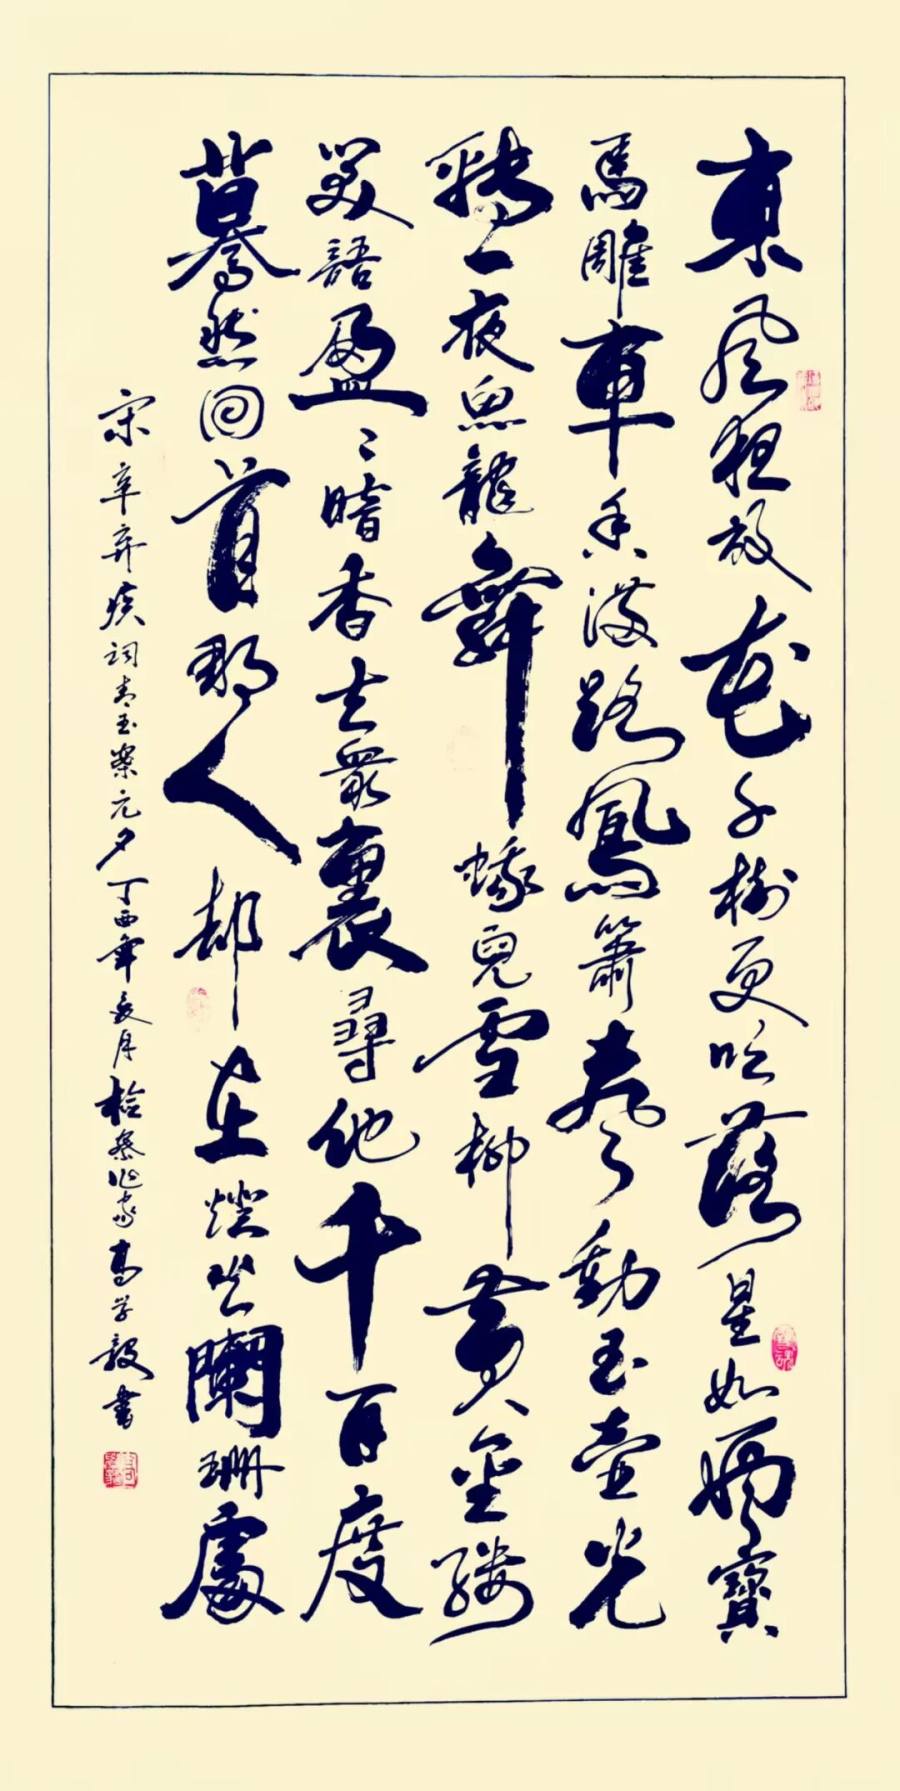 東風狂放花千樹更吹落星如雨寶
馬雕車香滿路鳳簫聲動玉壺光
轉一夜魚龍舞蛾兒雪柳黃金縷
笑語盈〻暗香去眾裏尋他千百度
驀然回首那人却在燈火闌珊處
宋辛弃疾詞青玉案元夕丁酉年夏月检察作家高学毅書